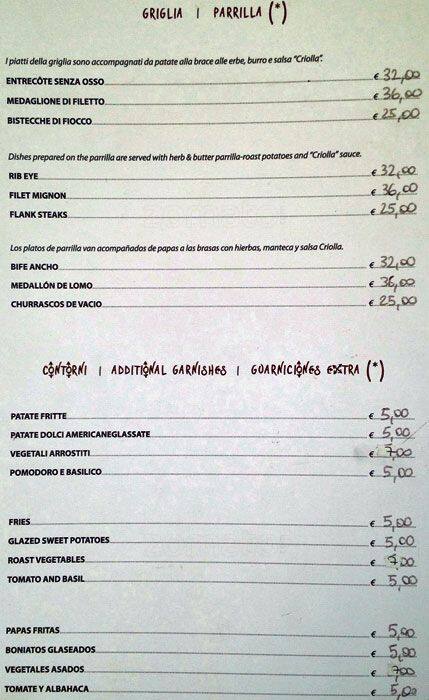 GRIGLIA | PARRILLA (*)
I piatti della griglia sono accompagnati da patate alla brace alle erbe, burro e salsa "Criolla".
ENTRECÔTE SENZA OSSO € 32,00
MEDAGLIONE DI FILETTO € 36,00
BISTECCHE DI FIOCCO € 25,00
Dishes prepared on the parrilla are served with herb & butter parrilla-roast potatoes and "Criolla" sauce.
RIB EYE € 32,00
FILET MIGNON € 36,00
FLANK STEAKS € 25,00
Los platos de parrilla van acompañados de papas a las brasas con hierbas, manteca y salsa Criolla.
BIFE ANCHO € 32,00
MEDALLÓN DE LOMO € 36,00
CHURRASCOS DE VACIO € 25,00
CONTORNI | ADDITIONAL GARNISHES | GUARNICIONES EXTRA (*)
PATATE FRITTE € 5,00
PATATE DOLCI AMERICANEGLASSATE € 5,00
VEGETALI ARROSTITI € 7,00
POMODORO E BASILICO € 5,00
FRIES € 5,00
GLAZED SWEET POTATOES € 5,00
ROAST VEGETABLES € 7,00
TOMATO AND BASIL € 5,00
PAPAS FRITAS € 5,00
BONIATOS GLASEADOS € 5,00
VEGETALES ASADOS € 7,00
TOMATE Y ALBAHACA € 5,00